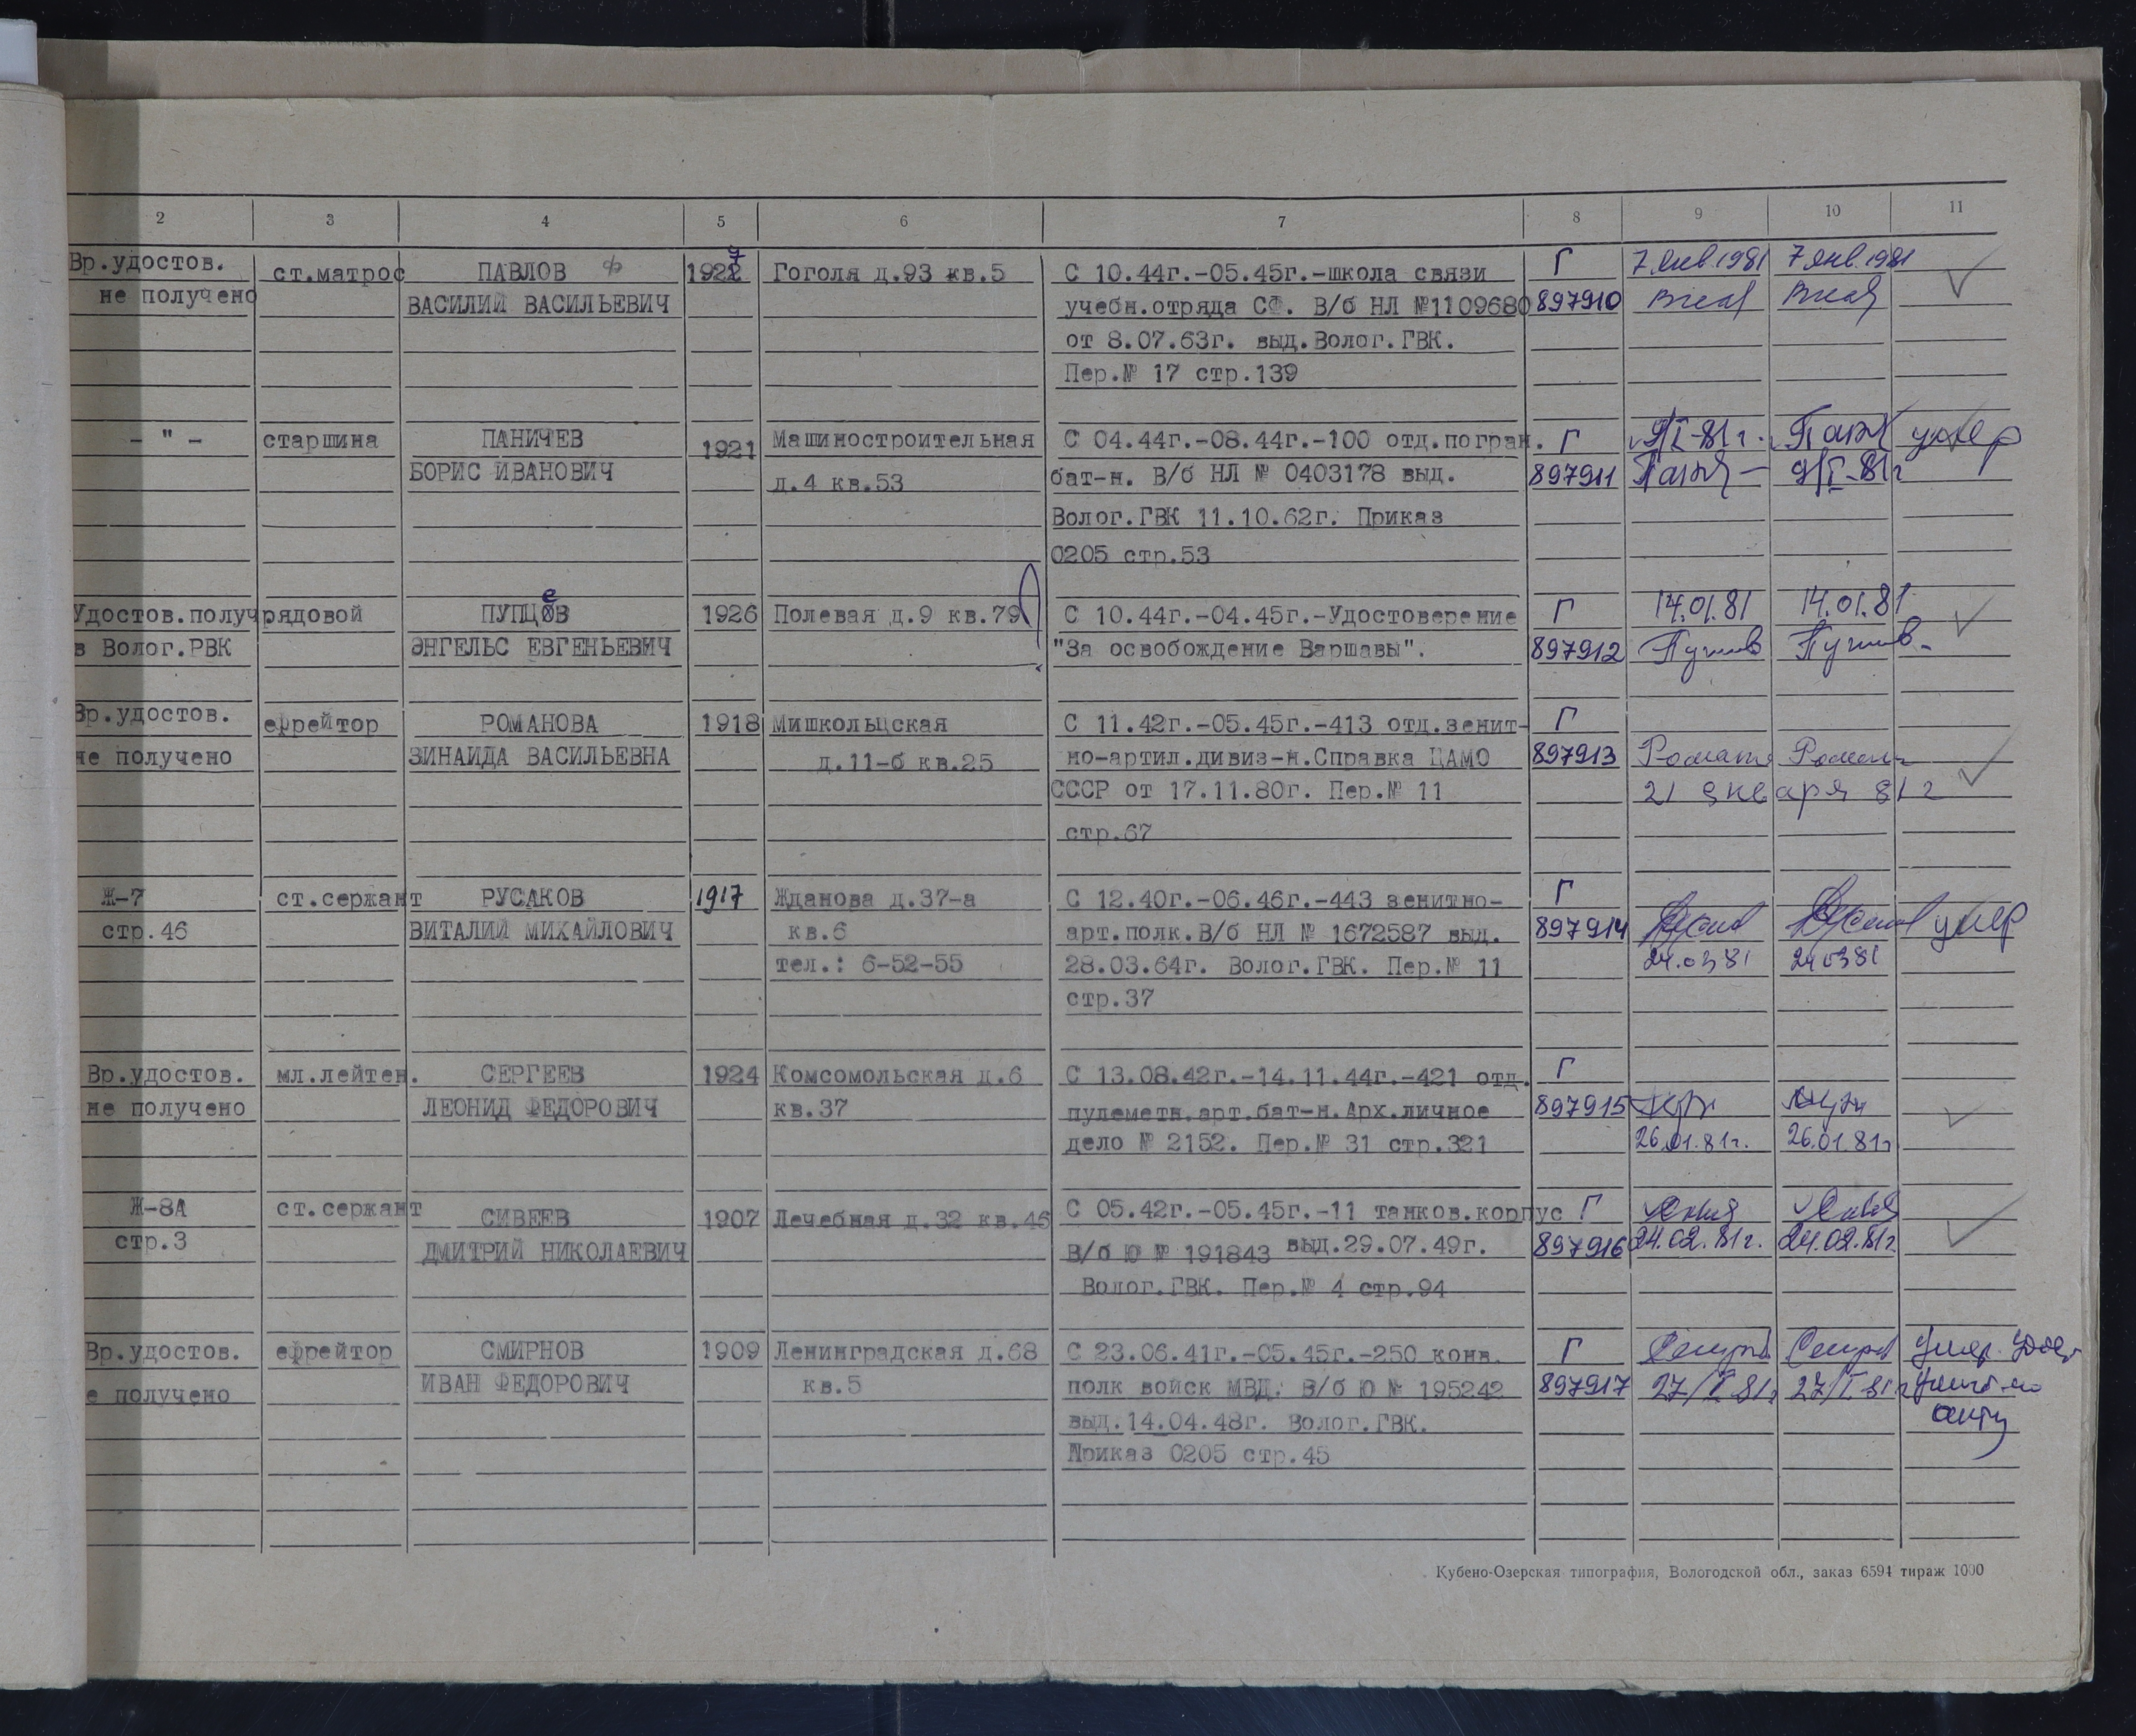 2 3 4 5 6 7 8 9 10 11
Вр.удостов. ст.матрос ПАВЛОВ ф 1927 Гоголя д.93 кв.5 С 10.44г.-05.45г.-школа связи Г 7 янв.1981 7 янв.1981
не получено ВАСИЛИЙ ВАСИЛЬЕВИЧ учебн.отряда СФ. В/б НЛ №1109680 897910
от 8.07.63г. выд.Волог.ГВК.
Пер.№ 17 стр.139
- " - старшина ПАНИЧЕВ 1921 Машиностроительная С 04.44г.-08.44г.-100 отд.погран. Г 9/I-81г. умер
БОРИС ИВАНОВИЧ д.4 кв.53 бат-н. В/б НЛ № 0403178 выд. 897911 9/I-81г
Волог.ГВК 11.10.62г. Приказ
0205 стр.53
Удостов.получ рядовой ПУПЦЕВ 1926 Полевая д.9 кв.79 С 10.44г.-04.45г.-Удостоверение Г 14.01.81 14.01.81
в Волог.РВК ЭНГЕЛЬС ЕВГЕНЬЕВИЧ "За освобождение Варшавы". 897912
Вр.удостов. ефрейтор РОМАНОВА 1918 Мишкольцская С 11.42г.-05.45г.-413 отд.зенит- Г
не получено ЗИНАИДА ВАСИЛЬЕВНА д.11-б кв.25 но-артил.дивиз-н.Справка ЦАМО 897913
СССР от 17.11.80г. Пер.№ 11 21 января 81г
стр.67
Ж-7 ст.сержант РУСАКОВ 1917 Жданова д.37-а С 12.40г.-06.46г.-443 зенитно- Г
стр.46 ВИТАЛИЙ МИХАЙЛОВИЧ кв.6 арт.полк.В/б НЛ № 1672587 выд. 897914 умер
тел.: 6-52-55 28.03.64г. Волог.ГВК. Пер.№ 11 24.03 81 24 03 81
стр.37
Вр.удостов. мл.лейтен. СЕРГЕЕВ 1924 Комсомольская д.6 С 13.08.42г.-14.11.44г.-421 отд. Г
не получено ЛЕОНИД ФЕДОРОВИЧ кв.37 пулеметн.арт.бат-н.Арх.личное 897915
дело № 2152. Пер.№ 31 стр.321 26.01.81г. 26.01.81г
Ж-8А ст.сержант СИВЕЕВ 1907 Лечебная д.32 кв.46 С 05.42г.-05.45г.-11 танков.корпус Г
стр.3 ДМИТРИЙ НИКОЛАЕВИЧ В/б Ю № 191843 выд.29.07.49г. 897916 24.02.81г. 24.02.81г
Волог.ГВК. Пер.№ 4 стр.94
Вр.удостов. ефрейтор СМИРНОВ 1909 Ленинградская д.68 С 23.06.41г.-05.45г.-250 конв. Г Умер.
е получено ИВАН ФЕДОРОВИЧ кв.5 полк войск МВД. В/б Ю № 195242 897917 27/I 81г 27/I-81г
выд.14.04.48г. Волог.ГВК. акту
Приказ 0205 стр.45
Кубено-Озерская типография, Вологодской обл., заказ 6594 тираж 1000